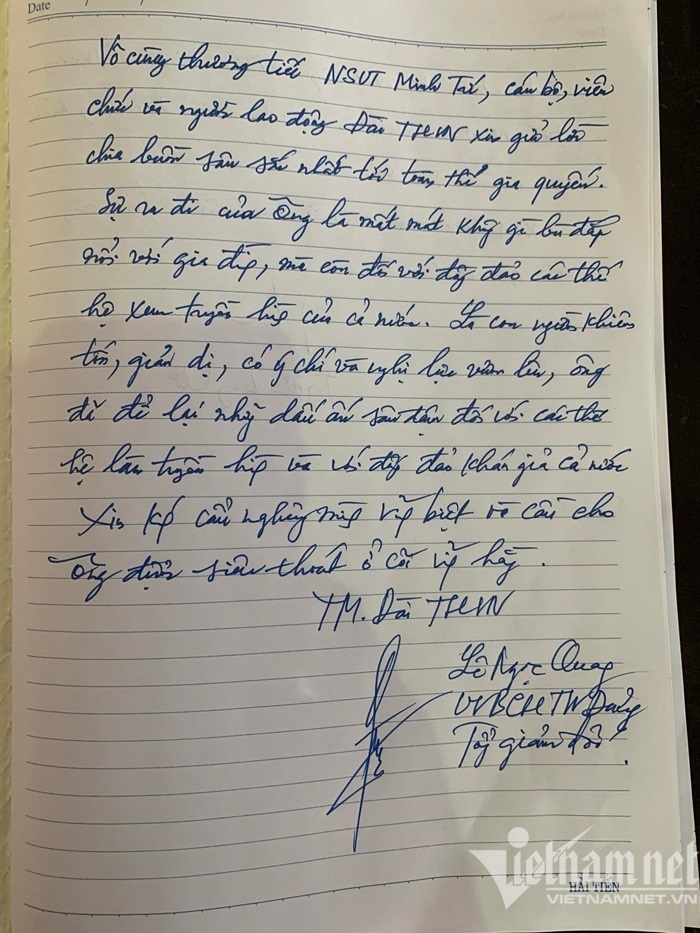 Date
Vô cùng thương tiếc NSƯT Minh Trí, cán bộ, viên
chức và người lao động Đài THVN xin gửi lời
chia buồn sâu sắc nhất tới toàn thể gia quyến.
Sự ra đi của Ông là mất mát không gì bù đắp
nổi với gia đình, mà còn đối với đông đảo các thế
hệ xem truyền hình của cả nước. Là con người khiêm
tốn, giản dị, có ý chí và nghị lực vươn lên, ông
đã để lại những dấu ấn sâu đậm đối với các thế
hệ làm truyền hình và với đông đảo khán giả cả nước
Xin kính cẩn nghiêng mình vĩnh biệt và cầu cho
Ông được siêu thoát ở cõi vĩnh hằng.
TM. Đài THVN
Lê Ngọc Quang
UVBCHTW Đảng
Tổng giám đốc.
Vietnamnet
HẢI TIẾN
VIETNAMNET.VN